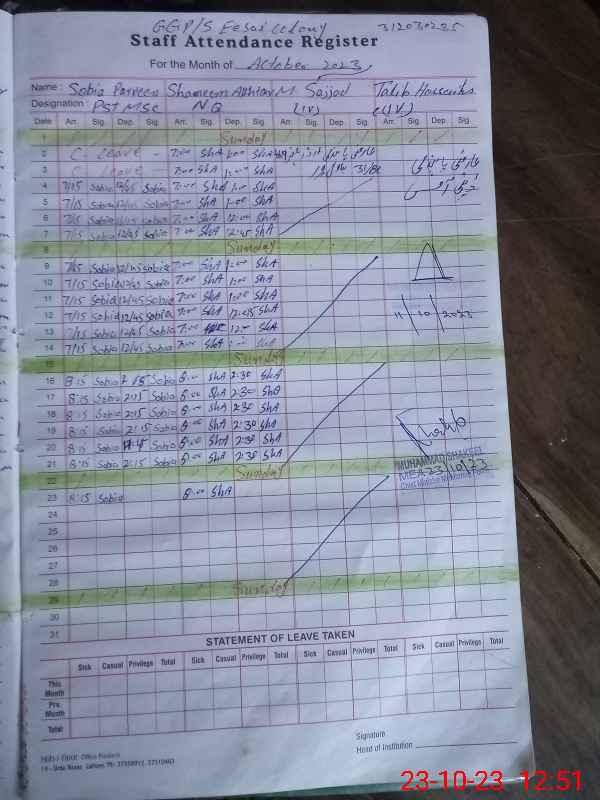 GGP/S Eesai colony
312030285
Staff Attendance Register
For the Month of October 2023
Name : Sobia Parveen Shameem Akhtar M. Sajjad Talib Hussain
Designation : PST MSc N.Q (IV) c(IV)
Date Arr. Sig. Dep. Sig. Arr. Sig. Dep. Sig. Arr. Sig. Dep. Sig. Arr. Sig. Dep. Sig.
1 Sunday
2 C. Leave - 7:00 ShA 1:00 ShA
3 C Leave 7:00 ShA 1:00 ShA
4 7/15 Sobia 12/45 Sobia 7:00 ShA 1:00 ShA
5 7/15 Sobia 12/45 Sobia 7:00 ShA 1:00 ShA
6 7/15 Sobia 12/45 Sobia 7:00 ShA 12:00 ShA
7 7/15 Sobia 12/45 Sobia 7:00 ShA 12:45 ShA
8 Sunday
9 7/15 Sobia 12/45 Sobia 7:00 ShA 1:00 ShA
10 7/15 Sobia 12/45 Sobia 7:00 ShA 1:00 ShA
11 7/15 Sobia 12/45 Sobia 7:00 ShA 1:00 ShA
12 7/15 Sobia 12/45 Sobia 7:00 ShA ShA
11/10/2023
13 7/15 Sobia 12/45 Sobia 7:00 ShA
14 7/15 Sobia 12/45 Sobia 7:00 ShA 1:00
15 Sunday
16 8:15 Sobia 2:15 Sobia 8:00 ShA 2:30 ShA
17 8:15 Sobia 2:15 Sobia 8:00 ShA 2:30 ShA
18 8:15 Sobia 2:15 Sobia 8:00 ShA 2:30 ShA
19 8:15 Sobia 2:15 Sobia 8:00 ShA 2:30 ShA
20 8:15 Sobia Sobia 8:00 ShA 2:30 ShA
21 8:15 Sobia 2:15 Sobia 8:00 ShA 2:30 ShA
MUHAMMAD SHAKEEL
22 Sunday
MEA 23/10/23
23 8:15 Sobia 8:00 ShA
24
25
26
27
28
29 Sunday
30
31
STATEMENT OF LEAVE TAKEN
Sick Casual Privilege Total Sick Casual Privilege Total Sick Casual Privilege Total Sick Casual Privilege Total
This Month
Pre. Month
Total
Signature
Head of Institution
Office Products
14 - Urdu Bazar, Lahore. Ph:
23-10-23 12:51